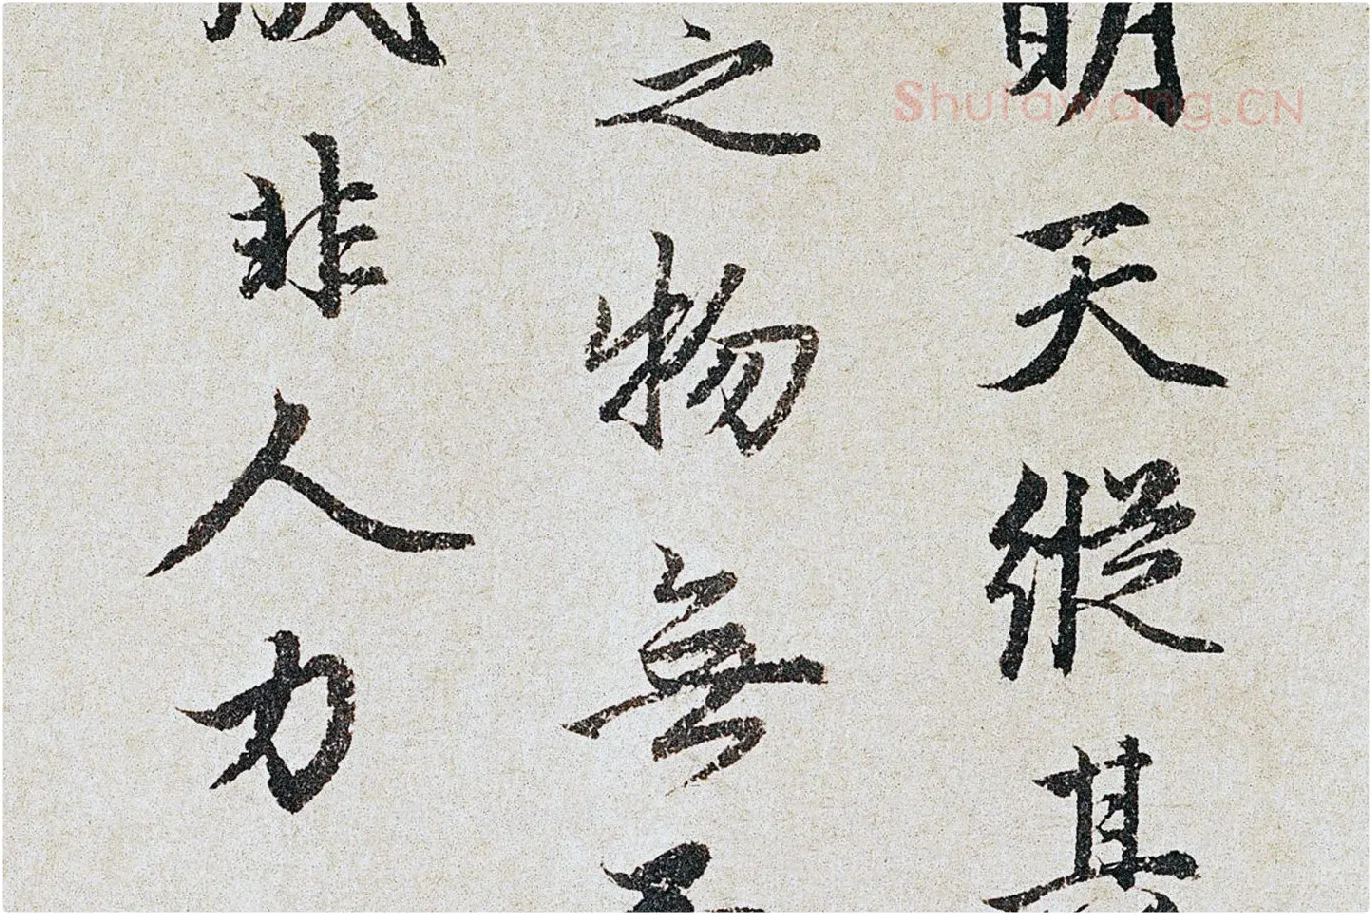 明天縱其
之物無
成非人力
Shufawang.CN